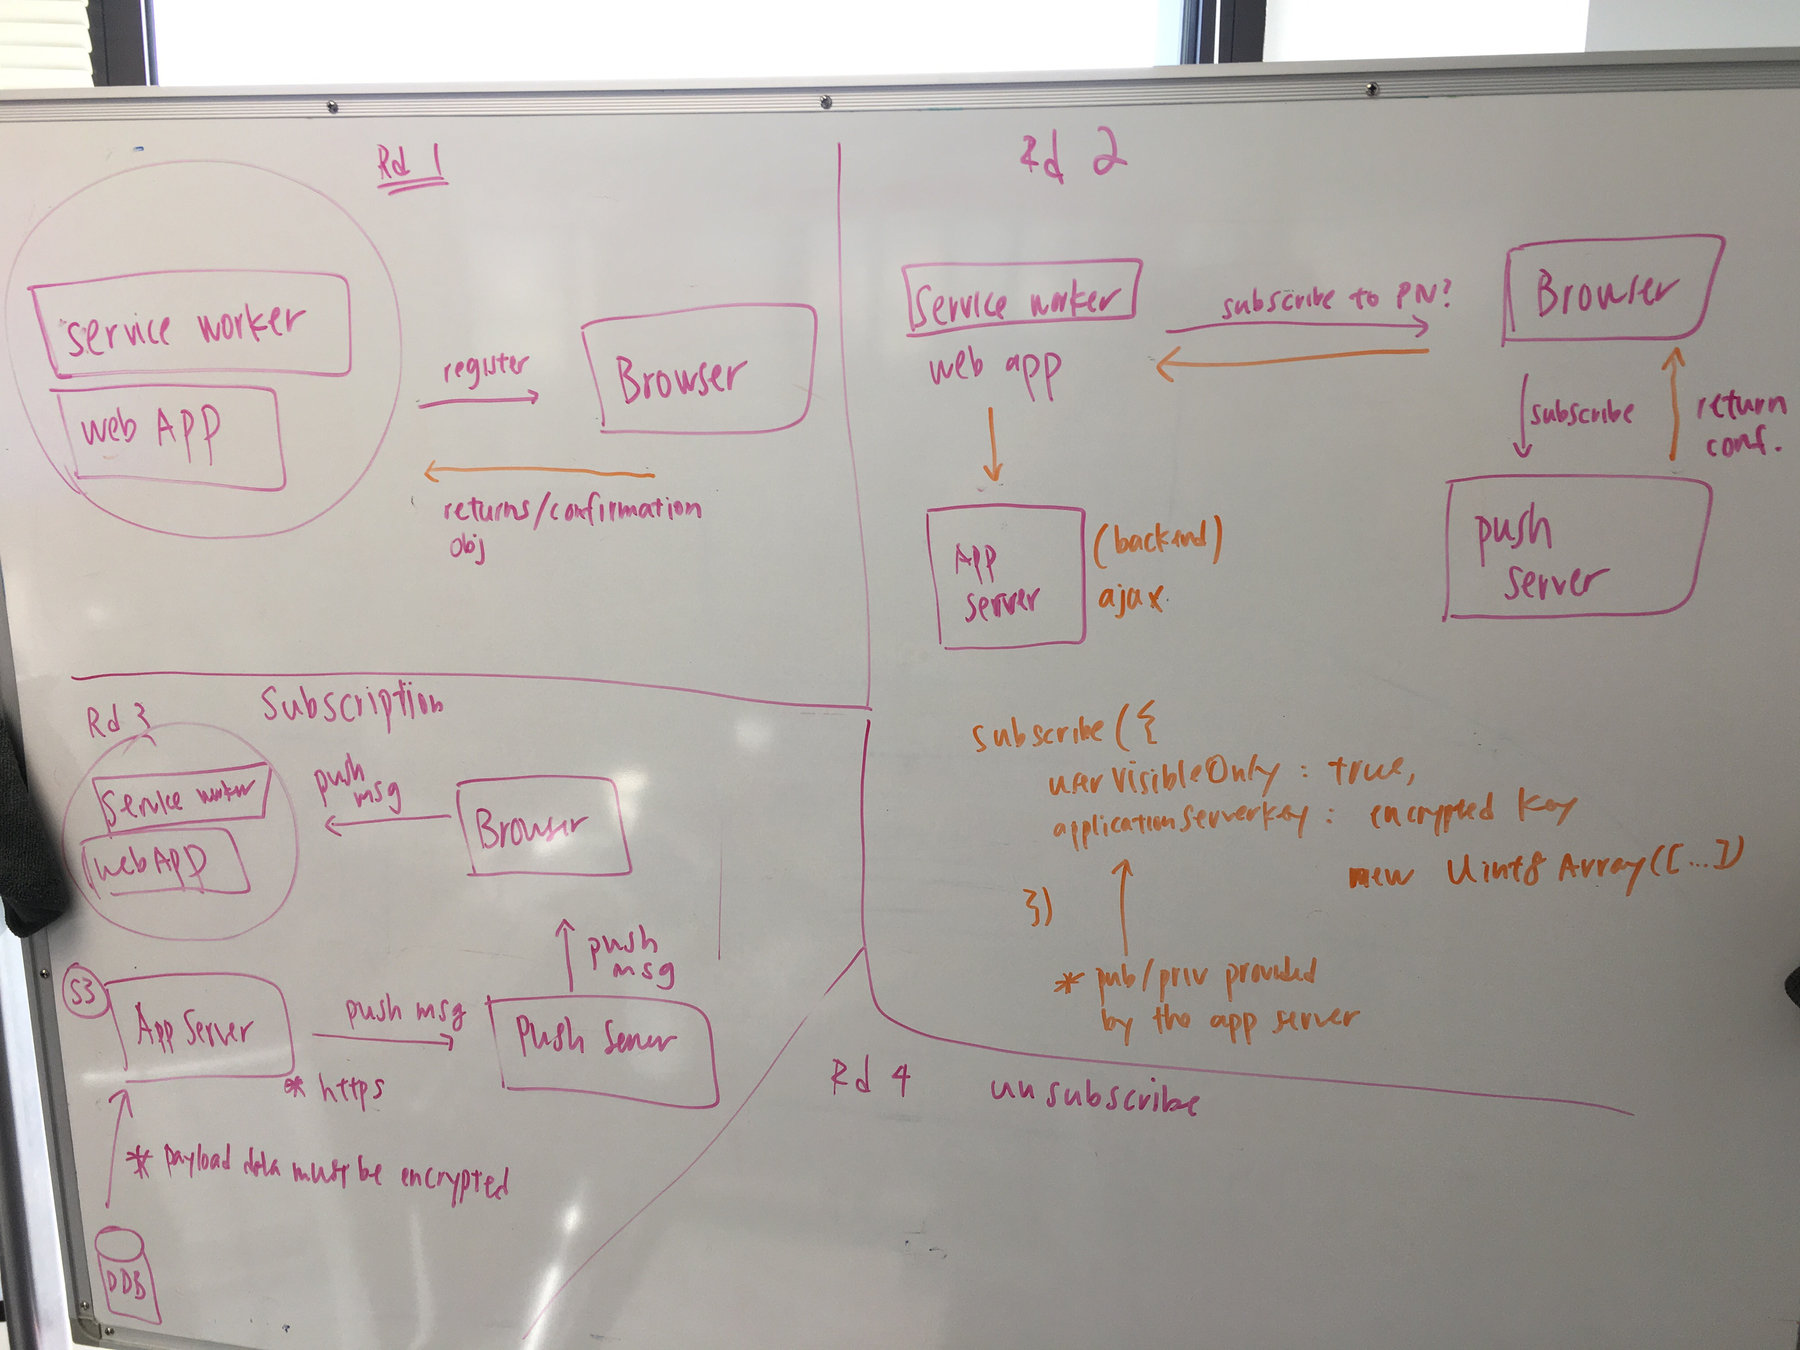 Rd 1
service worker
web APP
register
Browser
returns/confirmation
obj
Rd 2
service worker
web app
subscribe to PN?
Browser
subscribe
return
conf.
push
server
App
server
(backend)
ajax.
subscribe({
userVisibleOnly : true,
applicationServerKey : encrypted key
new Uint8 Array([...])
})
* pub/priv provided
by the app server
Rd 3
Subscription
service worker
web APP
push
msg
Browser
push
msg
S3
App Server
push msg
Push Server
* https
* payload data must be encrypted
DDB
Rd 4
unsubscribe